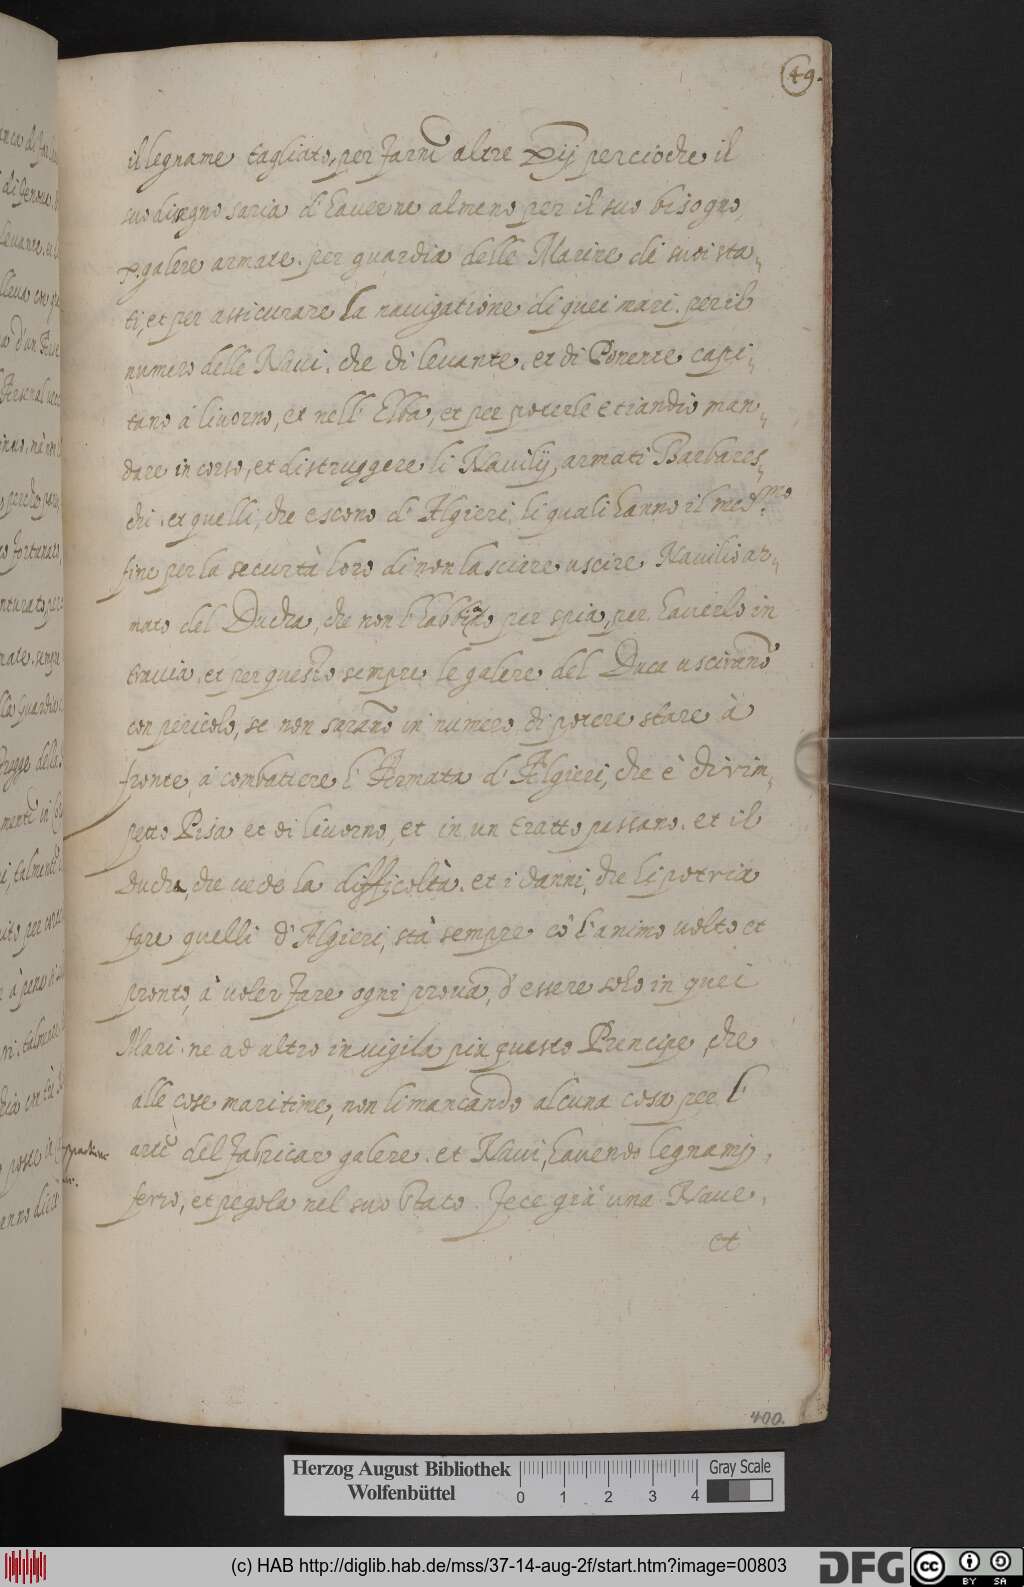 49.
il legname tagliato, per farne altre Xij percioche il
suo disegno saria d'haverne almeno per il suo bisogno,
X. galere armate. per guardia delle Marine di suoi sta,,
ti, et per assicurare la navigatione di quei mari. per il
numero delle Navi. che di levante. et di Ponente capi,,
tano à livorno, et nell' Elba, et per poterle etiandio man,,
dare in corso, et distruggere li Navilij, armati Barbares,,
chi. et quelli, che escono d' Algieri, li quali hanno il med.mo
fine per la securtà loro di non lasciare uscire Navilio ar,,
mato del Ducha, che non l' habbino per spia, per haverlo in
travia. et per questo sempre le galere del Duca usciranno
con pericolo, se non saranno in numero di potere stare à
fronte, à combattere l' Armata d' Algieri, che è dirim,,
petto Pisa et di livorno, et in un tratto passano. et il
Ducha, che vede la difficoltà. et i danni, che li potria
fare quelli d' Algieri, stà sempre cō l' animo volto et
pronto, à voler fare ogni prova, d' essere solo in quei
Mari. ne ad altro invigila piu questo Prencipe che
alle cose maritime, non li mancando alcuna cosa per l'
arte del fabricar galere. et Navi, havendo legnami,
ferro, et pegola nel suo Stato. fece già una Nave.
et
400.
Herzog August Bibliothek
Wolfenbüttel
0 1 2 3 4
Gray Scale
(c) HAB http://diglib.hab.de/mss/37-14-aug-2f/start.htm?image=00803
DFG
cc BY SA